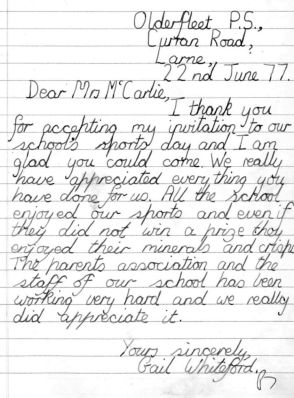 Olderfleet P.S.,
Curran Road,
Larne,
22nd June 77.
Dear Mrs McCarlie,
I thank you
for accepting my invitation to our
school's sports day and I am
glad you could come. We really
have appreciated everything you
have done for us. All the school
enjoyed our sports and even if
they did not win a prize they
enjoyed their minerals and crisps.
The parents association and the
staff of our school has been
working very hard and we really
did appreciate it.
Yours sincerely,
Gail Whiteford.